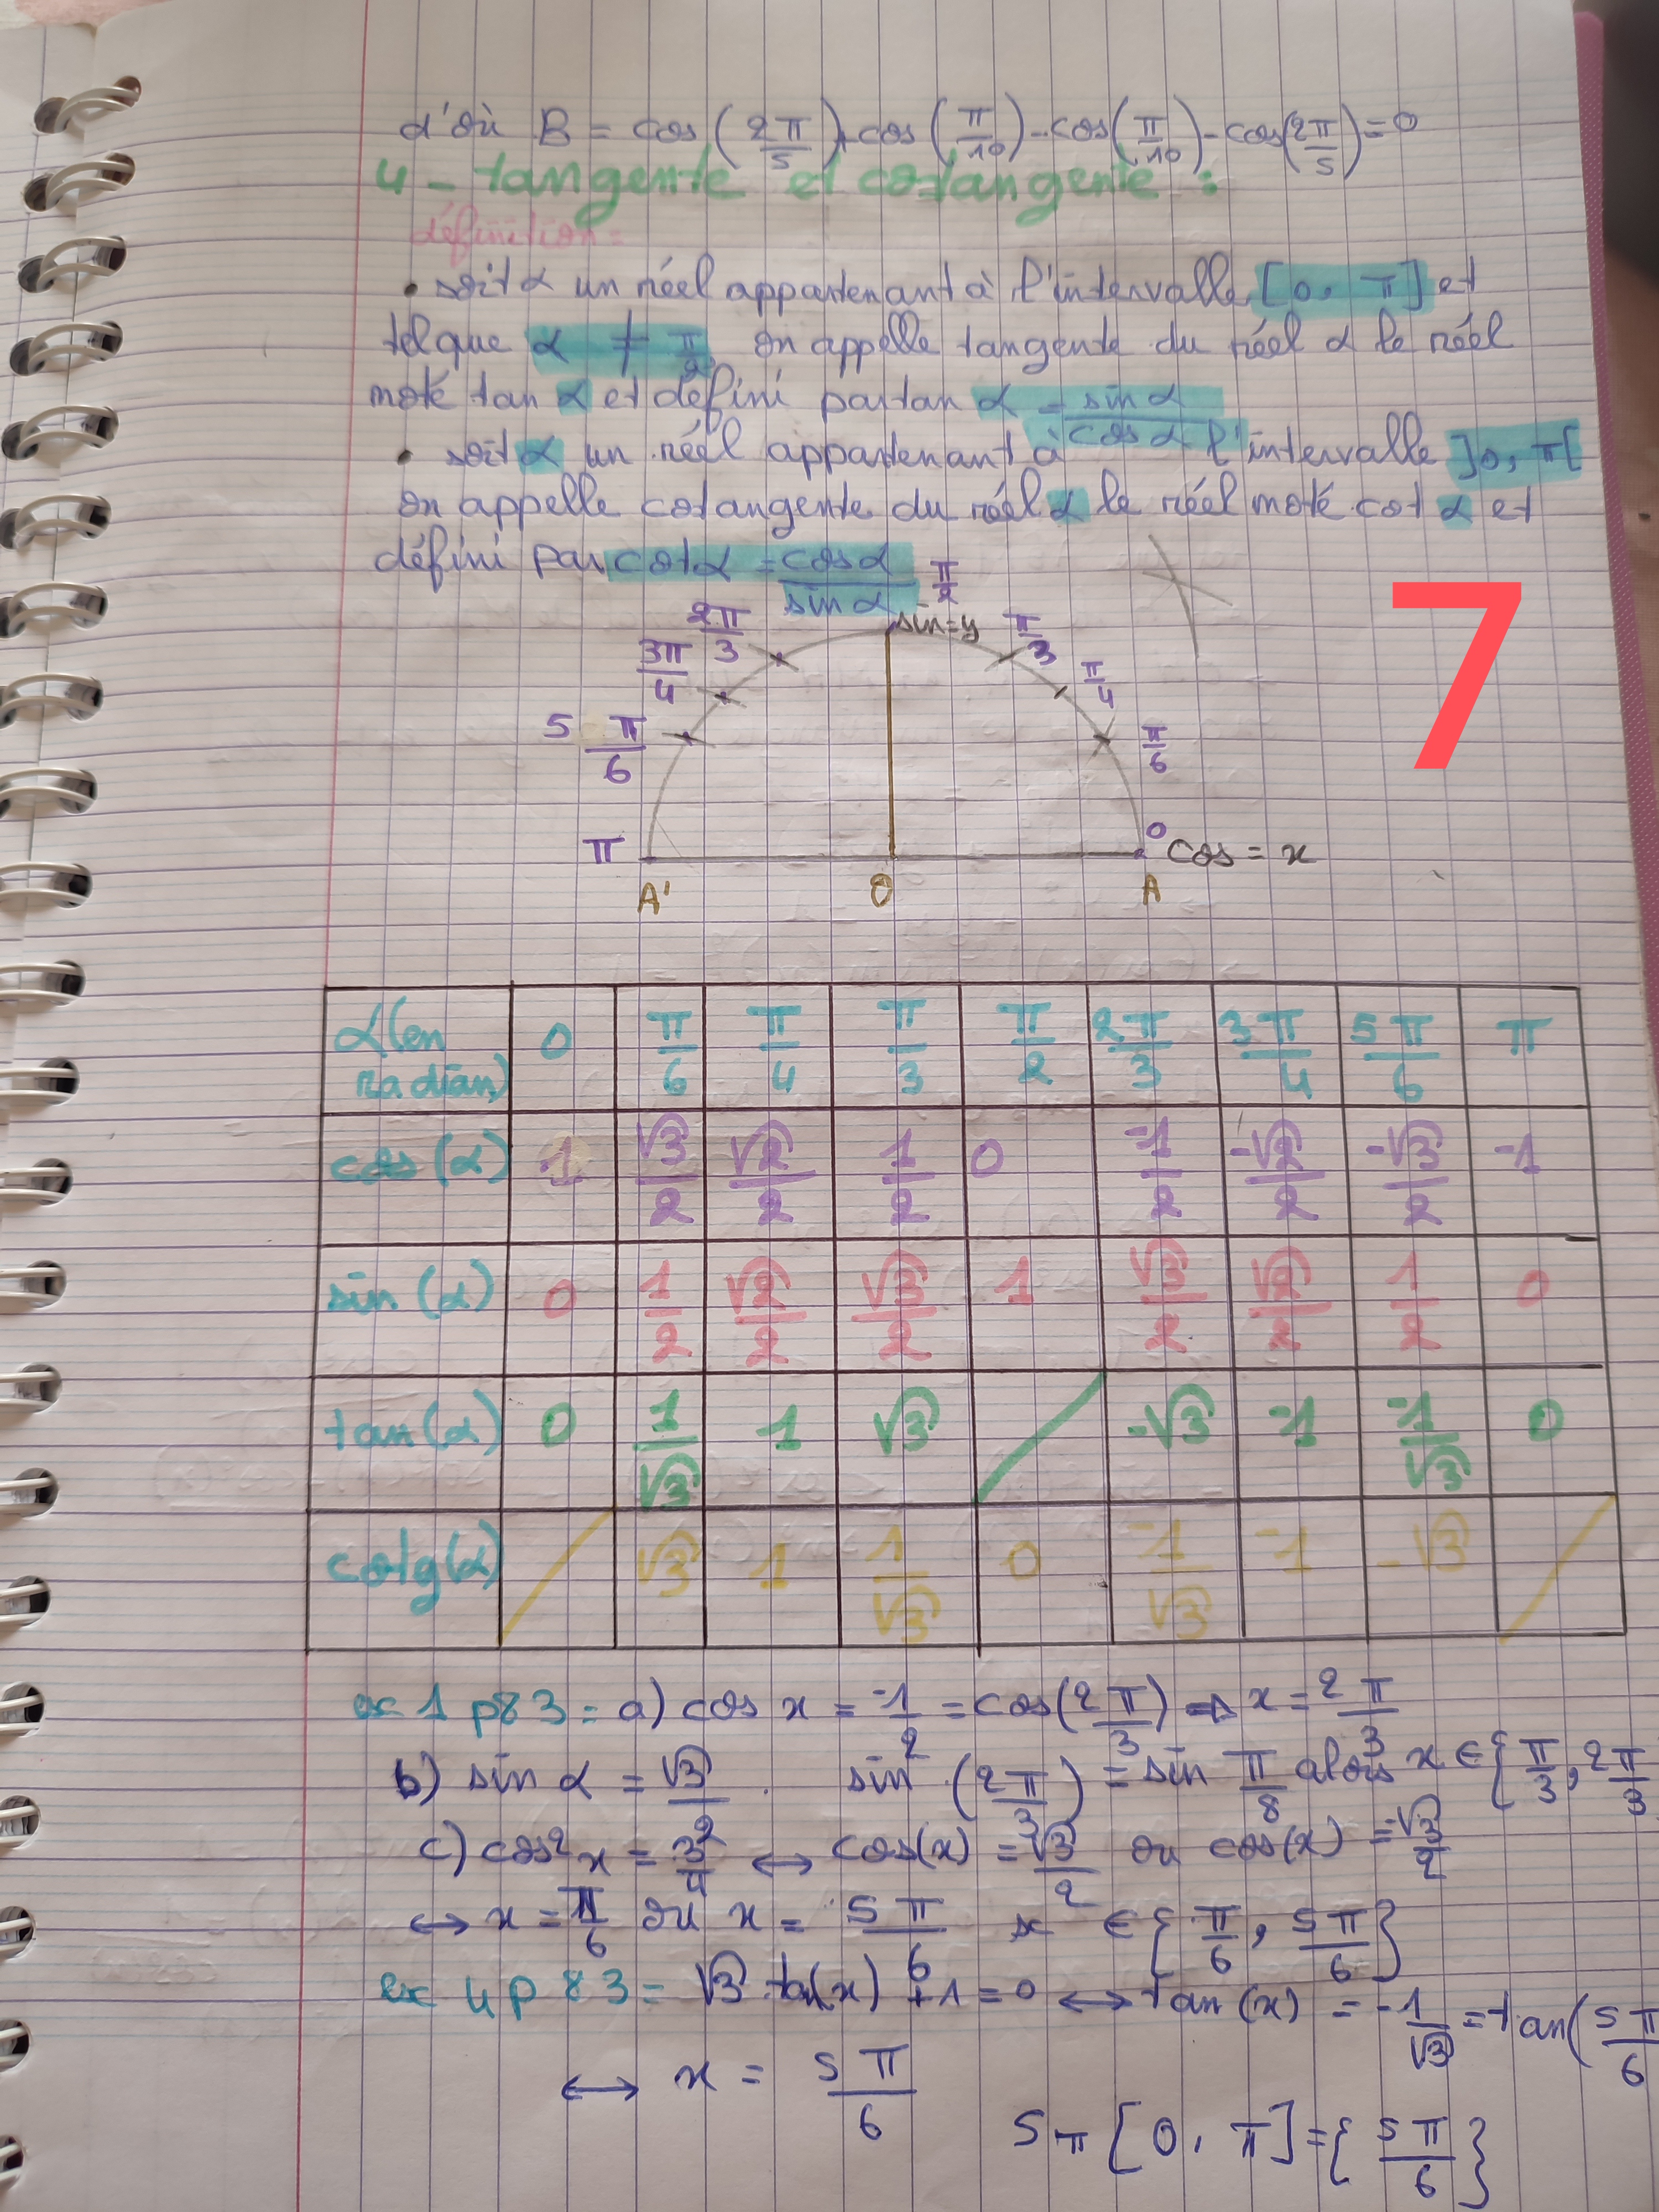 d'où B = cos(2π/5) + cos(π/10) - cos(π/10) - cos(2π/5) = 0
4 - tangente et cotangente :
définition =
• soit α un réel appartenant à l'intervalle [0, π] et
tel que α ≠ π/2 on appelle tangente du réel α le réel
noté tan α et défini par tan α = sin α/cos α
• soit α un réel appartenant à l'intervalle ]0, π[
on appelle cotangente du réel α le réel noté cot α et
défini par cot α = cos α/sin α
π/2
sin = y
2π/3
π/3
3π/4
π/4
5π/6
π/6
π
0
cos = x
A' O A
7
α(en radian) 0 π/6 π/4 π/3 π/2 2π/3 3π/4 5π/6 π
cos(α) 1 √3/2 √2/2 1/2 0 -1/2 -√2/2 -√3/2 -1
sin(α) 0 1/2 √2/2 √3/2 1 √3/2 √2/2 1/2 0
tan(α) 0 1/√3 1 √3 -√3 -1 -1/√3 0
cotg(α) √3 1 1/√3 0 -1/√3 -1 -√3
ex 1 p83 = a) cos x = -1/2 = cos(2π/3) ⇒ x = 2π/3
b) sin α = √3/2 . sin (2π/3) = sin π/8 alors x ∈ {π/3, 2π/3
c) cos² x = 3/4 ↔ cos(x) = √3/2 ou cos(x) = -√3/2
↔ x = π/6 ou x = 5π/6 x ∈ {π/6, 5π/6}
ex 4 p 83 = √3 tan(x) + 1 = 0 ↔ tan(x) = -1/√3 = tan(5π/6
↔ x = 5π/6
Sπ [0, π] = {5π/6}